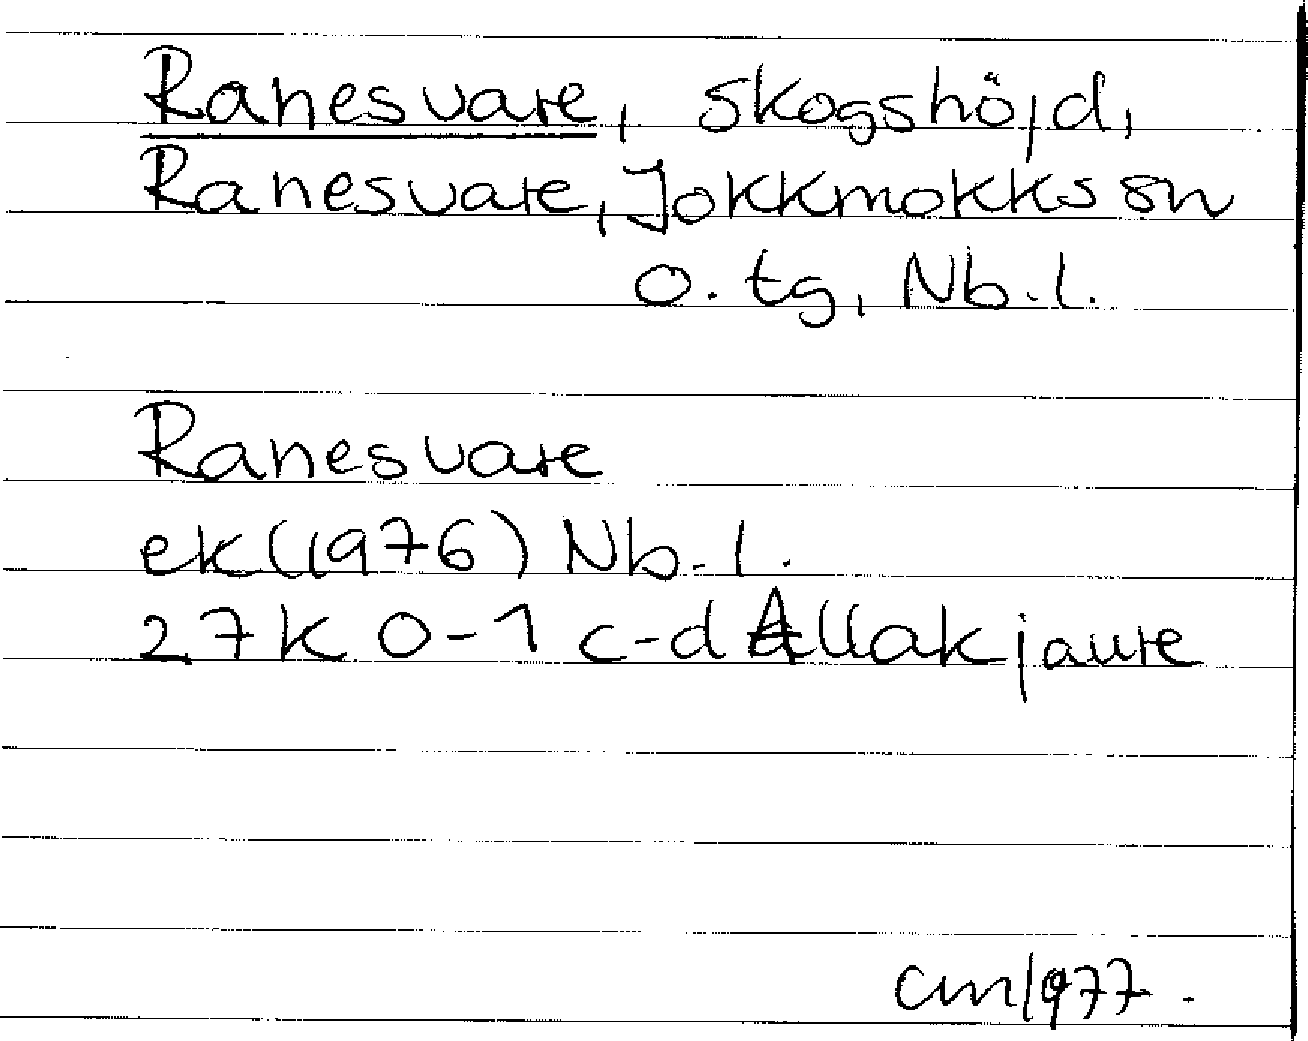 Ranesvare, skogshöjd,
Ranesvare, Jokkmokks sn
o. tg, Nb.l.
Ranesvare
ek (1976) Nb.l.
27K 0-1 c-d Allakjaure
cm 1977.